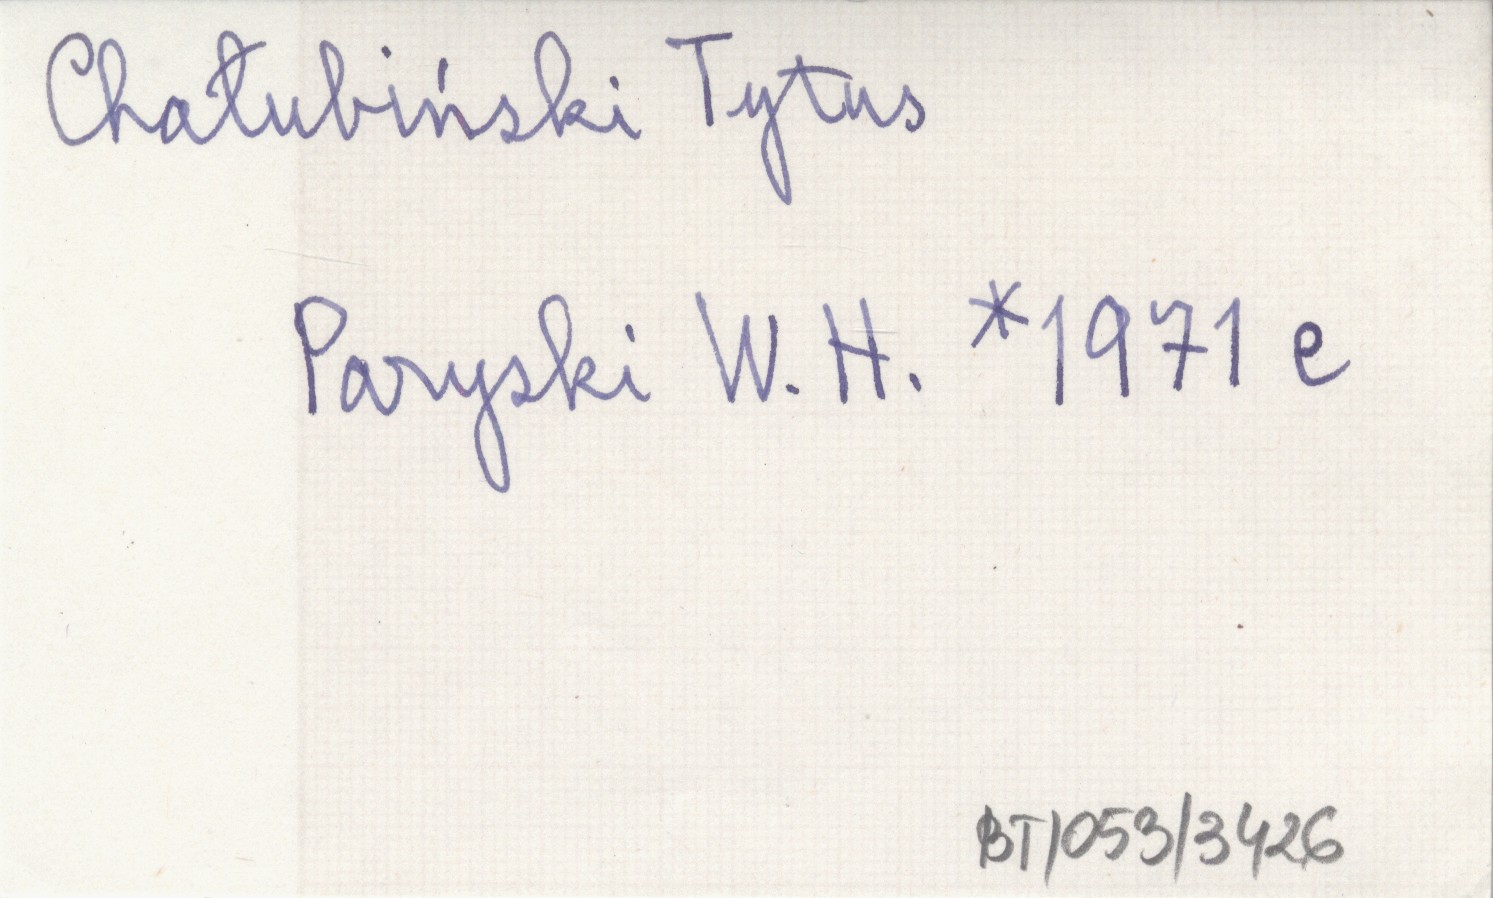 Chałubiński Tytus
Paryski W. H. *1971 e
BT/053/3426